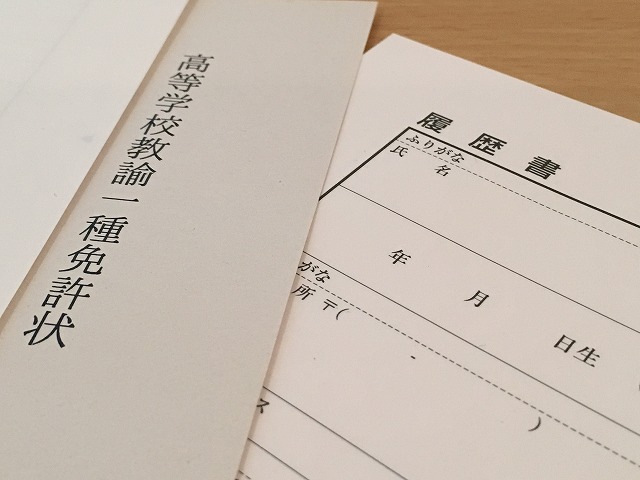 高等学校教諭一種免許状
履歴書
ふりがな
氏名
年 月 日生
がな
所 〒( - )
ス